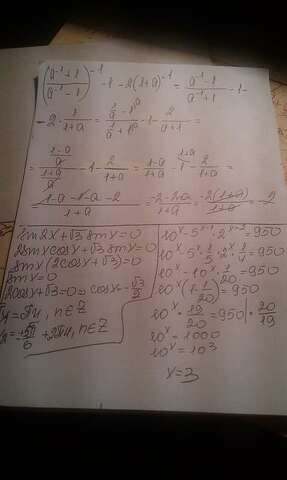 (a⁻¹+1 / a⁻¹-1)⁻¹ -1-2(1+a)⁻¹ = a⁻¹-1 / a⁻¹+1 -1-
-2·1/1+a = (1/a -1)/(1/a +1) -1- 2/a+1 =
= (1-a/a)/(1+a/a) -1- 2/1+a = 1-a/1+a -1- 2/1+a =
1-a-1-a-2 / 1+a = -2-2a / 1+a = -2(1+a) / 1+a = -2
sin2x+√3 sinx=0
2sinx cosx+√3 sinx=0
sinx(2cosx+√3)=0
sinx=0
2cosx+√3=0 cosx=-√3/2
x₁=πn, n∈Z
x₂=±5π/6 +2πn, n∈Z
10ˣ-5ˣ⁻¹·2ˣ⁻²=950
10ˣ-5ˣ·1/5·2ˣ·1/4=950
10ˣ-10ˣ·1/20=950
10ˣ(1-1/20)=950
10ˣ·19/20=950 |·20/19
10ˣ=1000
10ˣ=10³
x=3